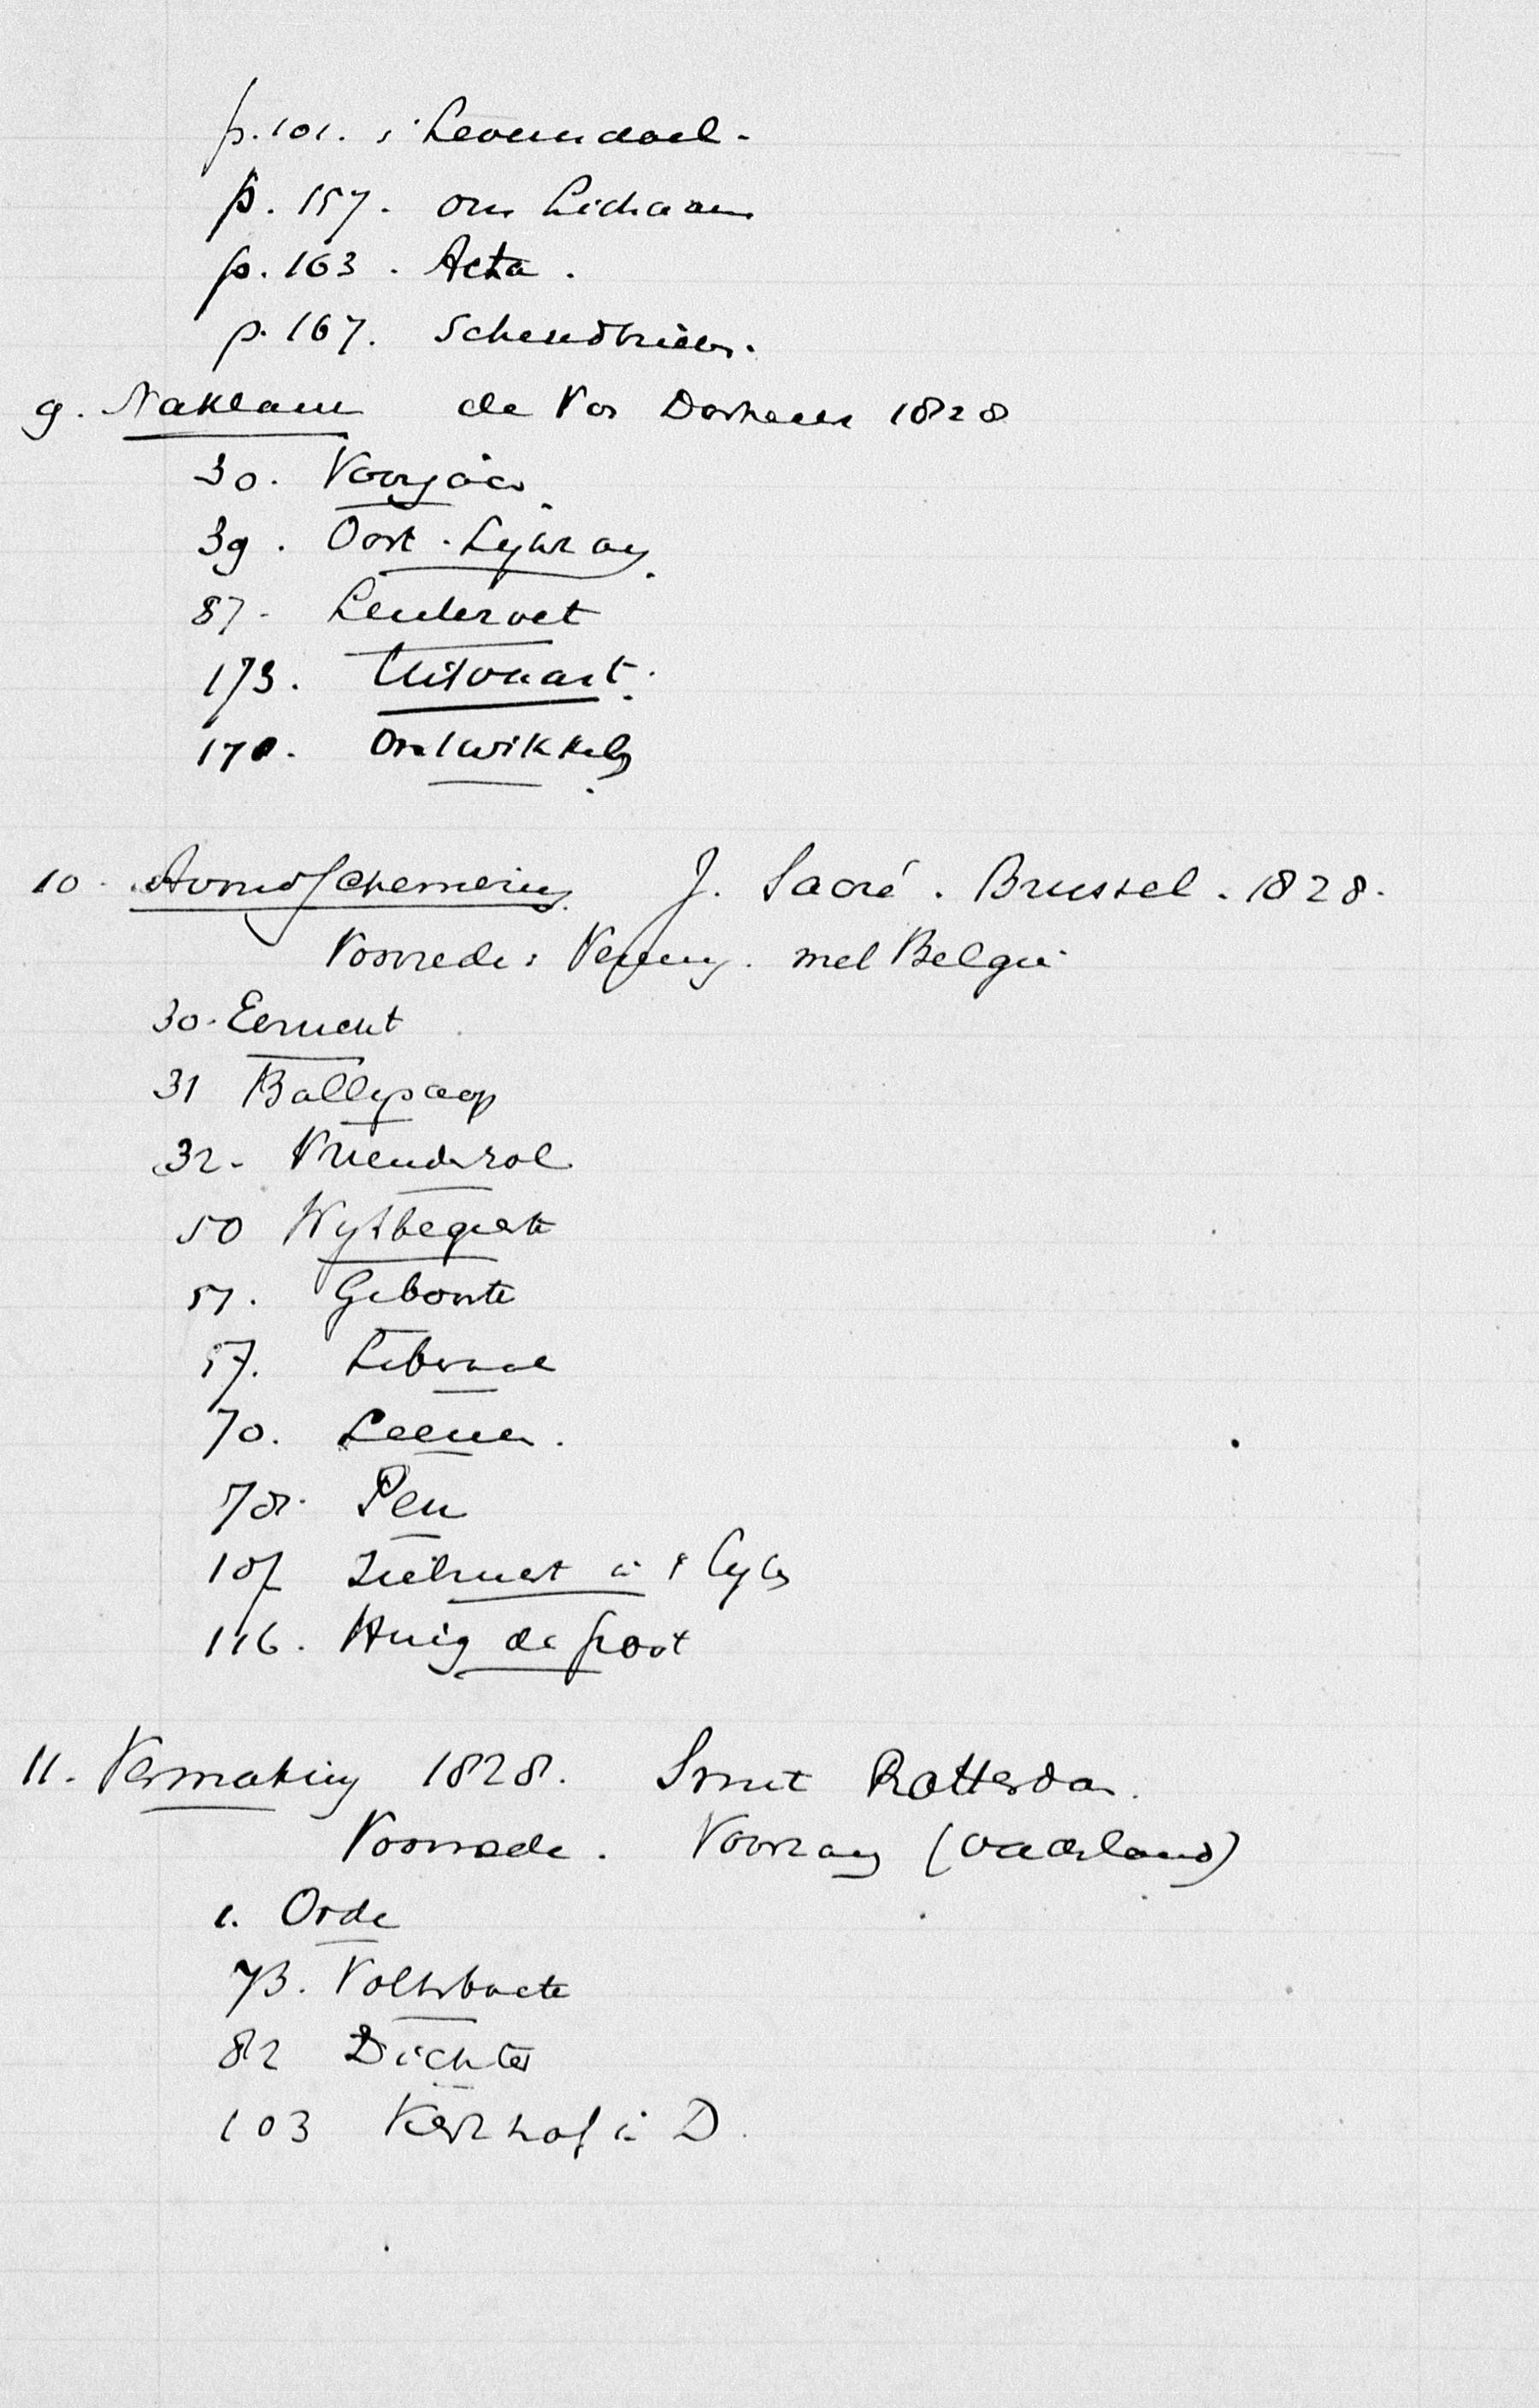 p. 101. 's Levensdoel.
p. 157. ons Lichaam
p. 163. Acta.
p. 167. Schendbrieven.
9. Naklank de Vos Dorkaan 1828
30. Voorjaar.
39. Oost. Lijkzang.
87. Lentezoet
173. Uitvaart.
178. Ontwikkeling.
10. Avondschemering. J. Sacré. Brussel. 1828.
Voorrede: Vereenig. met België
30. Eernent
31 Ballingschap
32. Vriendenrol
50 Wijsbegeerte
51. Geboorte
57. Liberaal
70. Leenen.
78. Pen
107 Zielrust in 't Lijden
116. Huig de Groot
11. Vermaking 1828. Smit Rotterdam.
Voorrede. Voorzang (vaderland)
1. Orde
73. Volksboete
82 Dichter
103 Kerkhof in D.